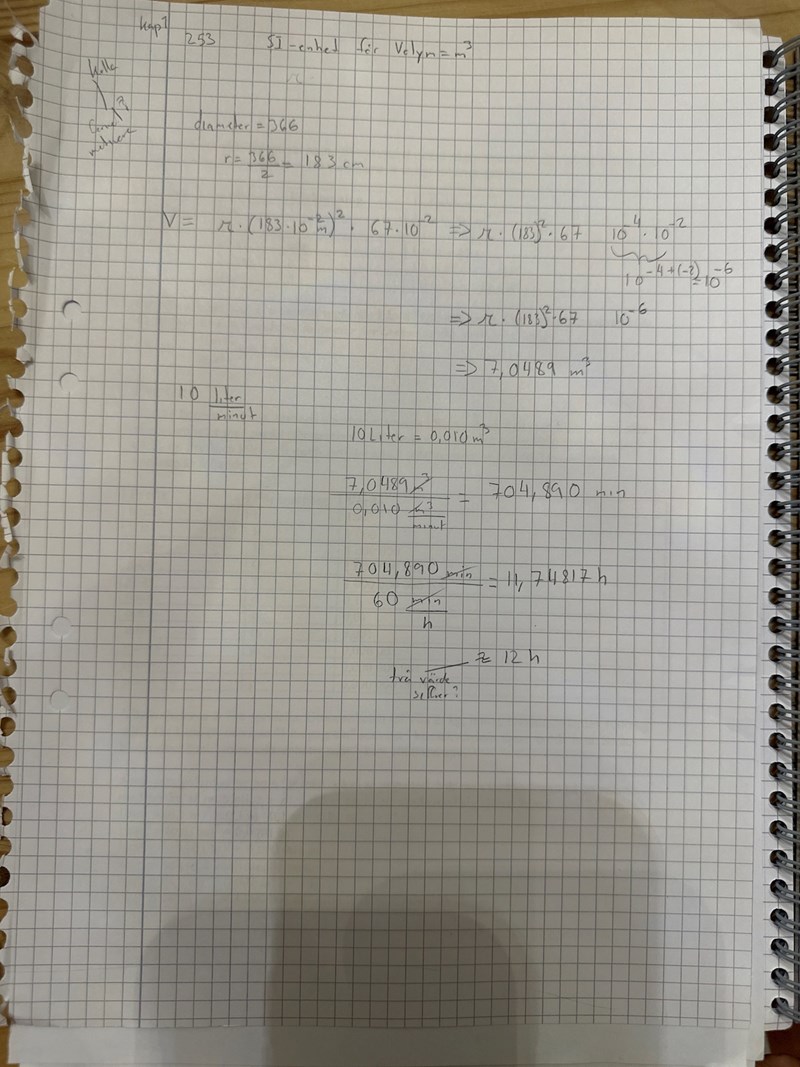 kap1
253 SI-enhet för Volym = m³
Kolla
diameter = 366
r = 366/2 = 183 cm
V = π · (183·10⁻² m)² · 67·10⁻² => π · (183)² · 67 10⁴ · 10⁻²
10⁻⁴⁺⁽⁻²⁾ = 10⁻⁶
=> π · (183)² · 67 10⁻⁶
=> 7,0489 m³
10 liter/minut
10 Liter = 0,010 m³
7,0489 m³ / 0,010 m³/minut = 704,890 min
704,890 min / 60 min/h = 11,74817 h
≈ 12 h
två värde
siffror?